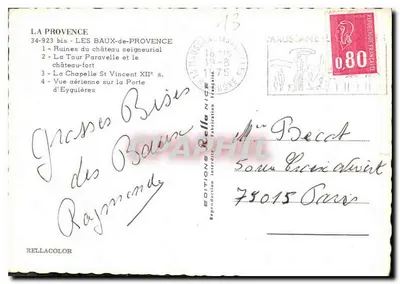 LA PROVENCE
34-923 bis - LES BAUX-de-PROVENCE
1 - Ruines du château seigneurial
2 - La Tour Paravelle et le
château-fort
3 - La Chapelle St Vincent XIIe s.
4 - Vue aérienne sur la Porte
d'Eyguières
13
0,80
Grosses Bises
des Baux
Raymonde
EDITIONS Rella NICE
Reproduction interdite
Becat
50 rue Croix Nivert
75015 Paris
BELLACOLOR